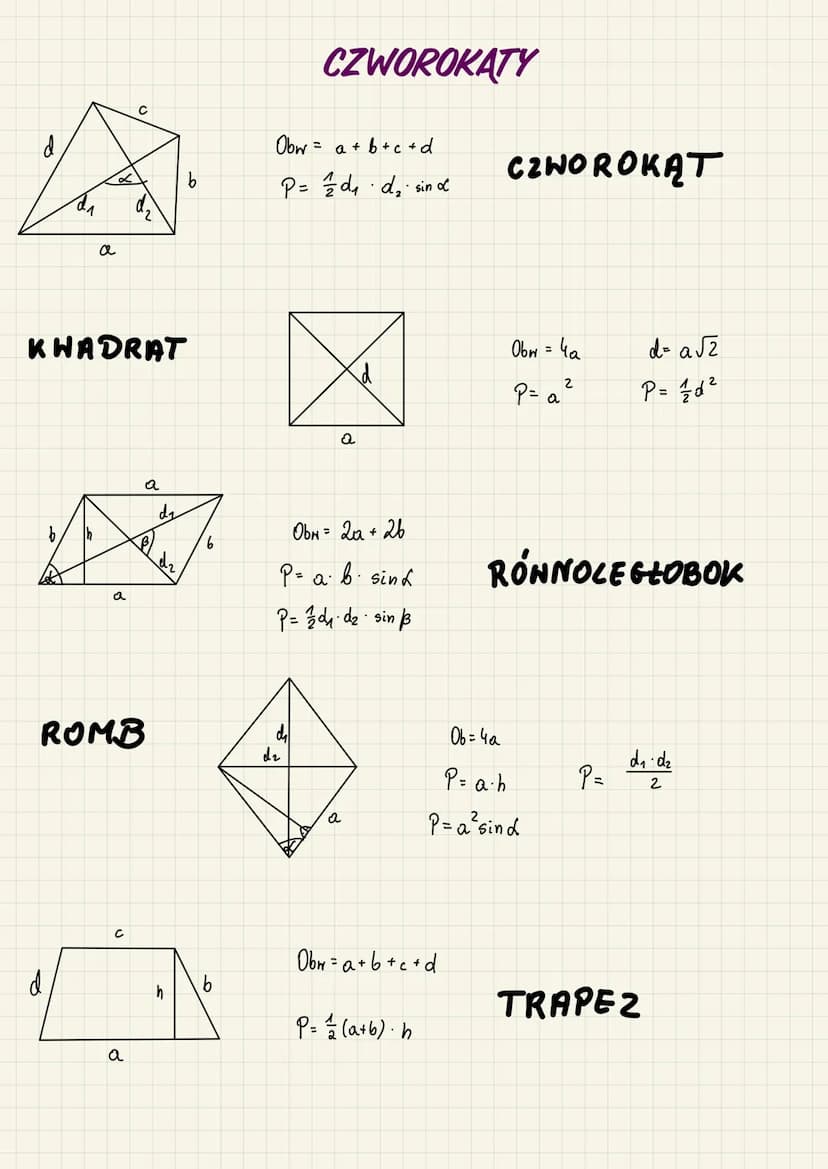 CZWOROKĄTY
c
d
b
α
d₁
d₂
a
Obw = a + b + c + d
P = ½ d₁ · d₂ · sin α
CZWOROKĄT
KWADRAT
d
a
Obw = 4a
P = a²
d = a√2
P = ½ d²
a
d₁
b
h
β
b
d₂
α
a
Obw = 2a + 2b
P = a · b · sin α
P = ½ d₁ · d₂ · sin β
RÓWNOLEGŁOBOK
ROMB
d₁
d₂
a
α
Ob = 4a
P = a · h
P = a² sin α
P = d₁ · d₂ / 2
c
d
h
b
a
Obw = a + b + c + d
P = ½ (a+b) · h
TRAPEZ